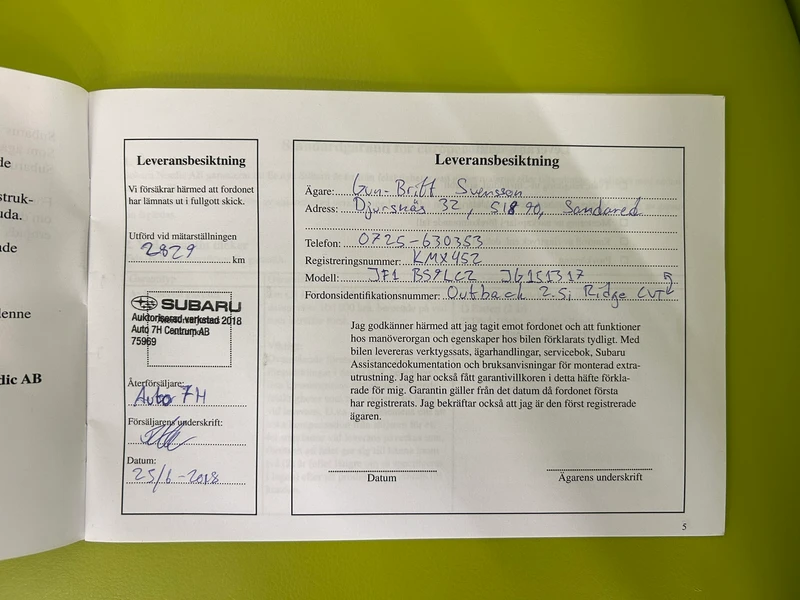 de
struk-
uda.
nde
denne
dic AB
Leveransbesiktning
Vi försäkrar härmed att fordonet
har lämnats ut i fullgott skick.
Utförd vid mätarställningen
2829 km
SUBARU
Auktoriserad verkstad 2018
Auto 7H Centrum AB
75969
Återförsäljare:
Auto 7H
Försäljarens underskrift:
Datum:
25/6-2018
Leveransbesiktning
Ägare: Gun-Britt Svensson
Adress: Djursnäs 32, 518 90, Sandared
Telefon: 0725-630353
Registreringsnummer: KMX452
Modell: JF1 BS9LCZ JG151317
Fordonsidentifikationsnummer: Outback 2.5i Ridge CVT
Jag godkänner härmed att jag tagit emot fordonet och att funktioner
hos manöverorgan och egenskaper hos bilen förklarats tydligt. Med
bilen levereras verktygssats, ägarhandlingar, servicebok, Subaru
Assistancedokumentation och bruksanvisningar för monterad extra-
utrustning. Jag har också fått garantivillkoren i detta häfte förkla-
rade för mig. Garantin gäller från det datum då fordonet första
har registrerats. Jag bekräftar också att jag är den först registrerade
ägaren.
Datum
Ägarens underskrift
5